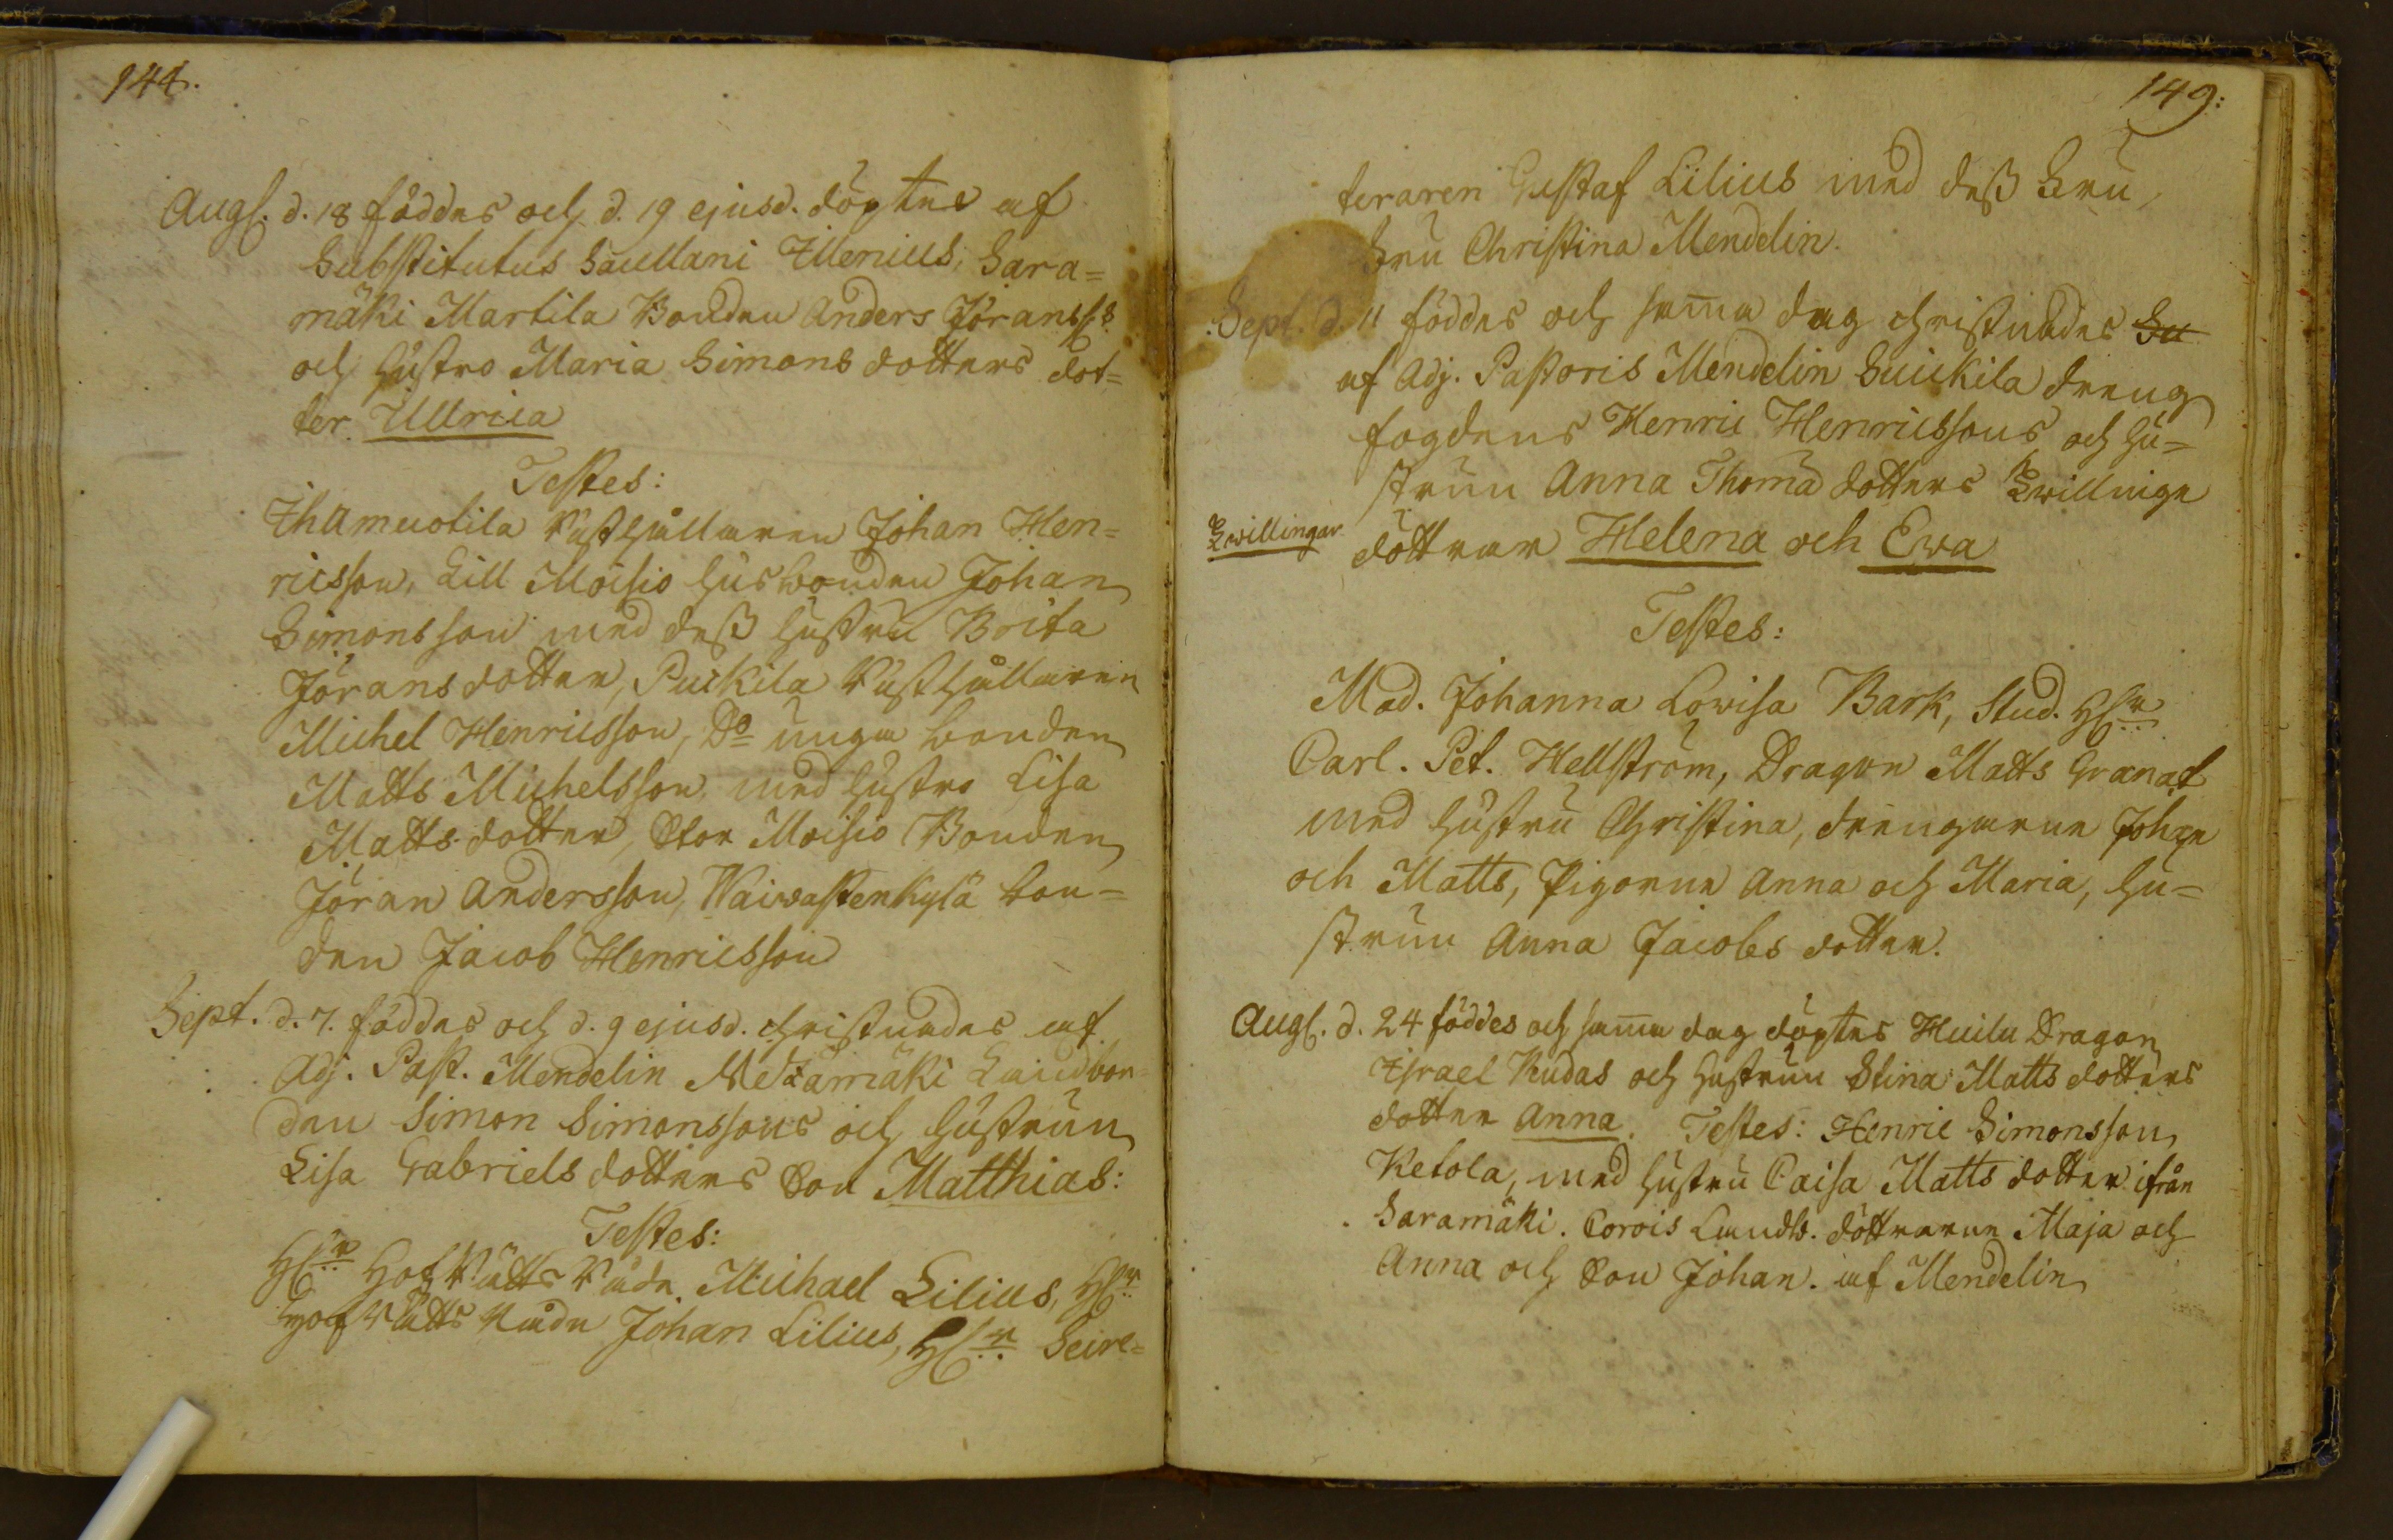 144.
Augs. d. 18 föddes och d. 19 ejusd. döptes af
Substitutus Sacellani Zillenius, Sara=
mäki Martila Bonden Anders Jöranss:s
och hustro Maria Simons dotters dot=
ter. Ullrica
Testes:
Ihamuotila Rusthållaren Johan Hen=
ricsson, Lill Moisio husbonden Johan
Simonsson med dess hustru Brita
Jörans dotter, Puckila Rusthållaren
Michel Henricsson, Do unga bonden
Matts Michelsson med hustro Lisa
Matts dotter, Stor Moisio Bonden
Jöran Andersson, Waiwastenkylä bon=
den Jacob Henricsson
Sept. d. 7. föddes och d. 9 ejusd. christnades af
Adj. Past. Mendelin Metzämäki Landbon=
den Simon Simonssons och hustrun
Lisa Gabriels dotters Son Matthias:
Testes:
H:r HofRätts Råde Michael Lilius, H:r
HofRätts Råde Johan Lilius, H:r Secre=
149:
teraren Gustaf Lilius med dess Fru,
Fru Christina Mendelin.
Sept. d. 11 föddes och samma dag christnades Su
af Adj. Pastoris Mendelin Suikkila dreng
fogdens Henric Henricssons och hu=
strun Anna Thomä dotters Twillinge
Twillingar
döttrar Helena och Ewa
Testes:
Mad. Johanna Lowisa Bark, Stud. H:r
Carl. Pet. Hellström, Dragon Matts Granat
med hustru Christina, drengarne Johan
och Matts, Pigorne Anna och Maria, hu=
strun Anna Jacobs dotter.
Augs. d. 24 föddes och samma dag döptes Huilu Dragon
Israel Rudas och hustrun Stina Matts dotters
dotter Anna. Testes: Henric Simonsson
Ketola, med hustru Caisa Matts dotter ifrån
Saramäki. Corois Landb. döttrarne Maja och
Anna och Son Johan. af Mendelin